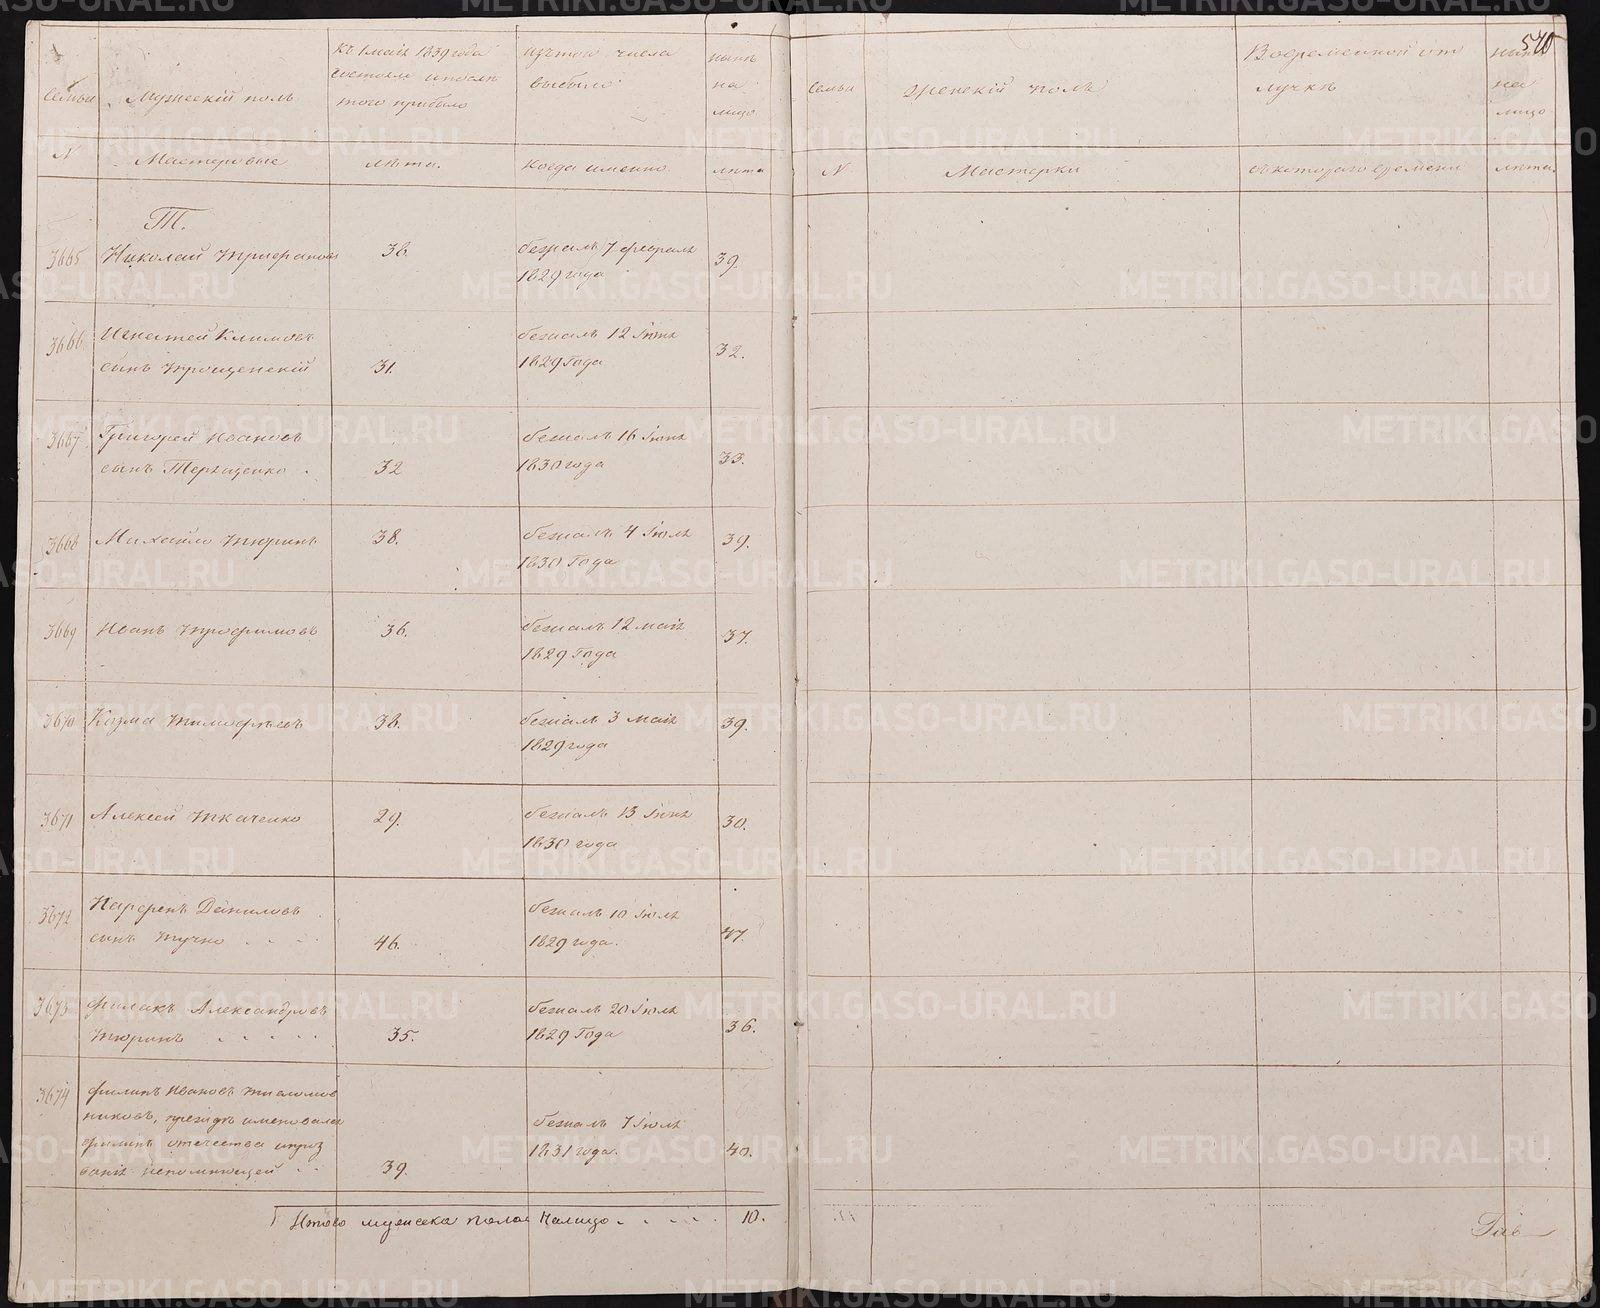 570
Семьи
Мужескій полъ
Къ 1 маія 1839 года
состояло и послѣ
того прибыло
изъ того числа
выбыло
нынѣ
на
лицо
N
Мастеровые
лѣта.
Когда именно
лѣта
Семьи
женскій полъ
В овременной от
лучкѣ
ныне
на
лицо
N
Мастерки
съ котораго времени
лѣта.
Т.
3665
Николай Трифановъ
38.
бежалъ 7 февраля
1829 года
39.
3666
Игнатей Климовъ
сынъ Трощенскій
31.
бежалъ 12 Іюня
1829 Года
32.
3667
Григорей Ивановъ
сынъ Терещенко
32
бежалъ 16 Іюня
1830 года
33.
3668
Михайло Тюринъ
38.
бежалъ 4 Іюля
1830 Года
39.
3669
Иванъ Трофимовъ
36.
бежалъ 12 маія
1829 Года
37.
3670
Козма Тимофѣевъ
38.
бежалъ 3 маія
1829 года
39.
3671
Алексей Ткаченко
29.
бежалъ 13 Іюня
1830 года
30.
3672
Парфенъ Даниловъ
сынъ Тучко
46.
бежалъ 10 Іюля
1829 года.
47.
3673
Александровъ
Тюринъ
35.
бежалъ 20 Іюля
1829 Года
36.
3674
Филипъ Ивановъ
никовъ, прежде именовался
Филипъ отечества ипроз
ванія непомнющей
39.
бежалъ 7 Іюля
1831 года.
40.
Итого мужеска пола Налицо
10.
METRIKI.GASO-URAL.RU